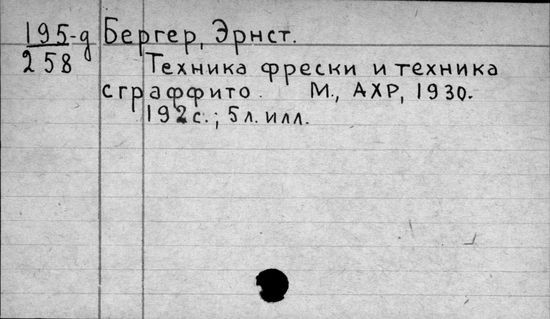 195-д Бергер, Эрнст.
258 Техника фрески и техника
сграффито. М., АХР, 1930.
192 с.; 5 л. илл.